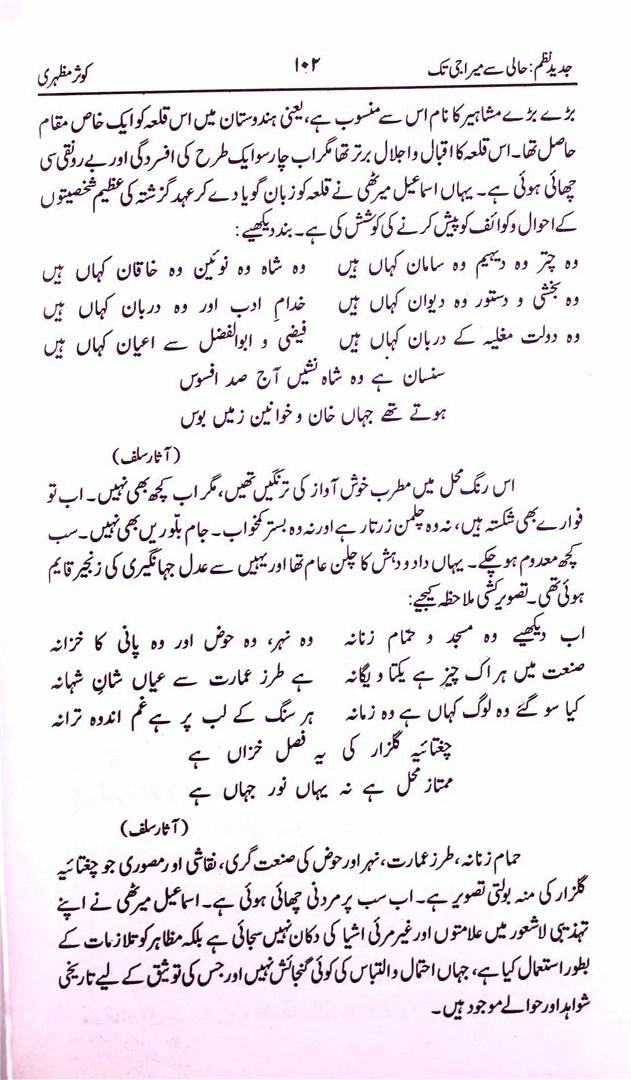 جدید نظم: حالی سے میراجی تک ۱۰۲ کوثر مظہری
بڑے بڑے مشاہیر کا نام اس سے منسوب ہے، یعنی ہندوستان میں اس قلعہ کو ایک خاص مقام
حاصل تھا۔ اس قلعہ کا اقبال و اجلال برتر تھا مگر اب چار سو ایک طرح کی افسردگی اور بے رونقی سی
چھائی ہوئی ہے۔ یہاں اسماعیل میرٹھی نے قلعہ کو زبان گویا دے کر عہد گزشتہ کی عظیم شخصیتوں
کے احوال و کوائف کو پیش کرنے کی کوشش کی ہے۔ بند دیکھیے:
وہ چتر وہ دیہیم وہ سامان کہاں ہیں وہ شاہ وہ نوئین وہ خاقان کہاں ہیں
وہ بخشی و دستور وہ دیوان کہاں ہیں خدامِ ادب اور وہ دربان کہاں ہیں
وہ دولت مغلیہ کے دربان کہاں ہیں فیضی و ابوالفضل سے اعیان کہاں ہیں
سنسان ہے وہ شاہ نشیں آج صد افسوس
ہوتے تھے جہاں خان و خوانین زمیں بوس
(آثار سلف)
اس رنگ محل میں مطرب خوش آواز کی ترنگیں تھیں، مگر اب کچھ بھی نہیں۔ اب تو
فوارے بھی شکستہ ہیں، نہ وہ چلمن زرتار ہے اور نہ وہ بستر کمخواب۔ جام بلّوریں بھی نہیں۔ سب
کچھ معدوم ہو چکے۔ یہاں داد و دہش کا چلن عام تھا اور یہیں سے عدل جہانگیری کی زنجیر قایم
ہوئی تھی۔ تصویر کشی ملاحظہ کیجیے:
اب دیکھیے وہ مسجد و حمّام زنانہ وہ نہر، وہ حوض اور وہ پانی کا خزانہ
صنعت میں ہر اک چیز ہے یکتا و یگانہ ہے طرز عمارت سے عیاں شانِ شہانہ
کیا سو گئے وہ لوگ کہاں ہے وہ زمانہ ہر سنگ کے لب پر ہے غم اندوہ ترانہ
چغتائیہ گلزار کی یہ فصل خزاں ہے
ممتاز محل ہے نہ یہاں نور جہاں ہے
(آثار سلف)
حمام زنانہ، طرز عمارت، نہر اور حوض کی صنعت گری، نقاشی اور مصوری جو چغتائیہ
گلزار کی منہ بولتی تصویر ہے۔ اب سب پر مردنی چھائی ہوئی ہے۔ اسماعیل میرٹھی نے اپنے
تہذیبی لاشعور میں علامتوں اور غیر مرئی اشیا کی دکان نہیں سجائی ہے بلکہ مظاہر کو تلازمات کے
بطور استعمال کیا ہے، جہاں احتمال و التباس کی کوئی گنجائش نہیں اور جس کی توثیق کے لیے تاریخی
شواہد اور حوالے موجود ہیں۔